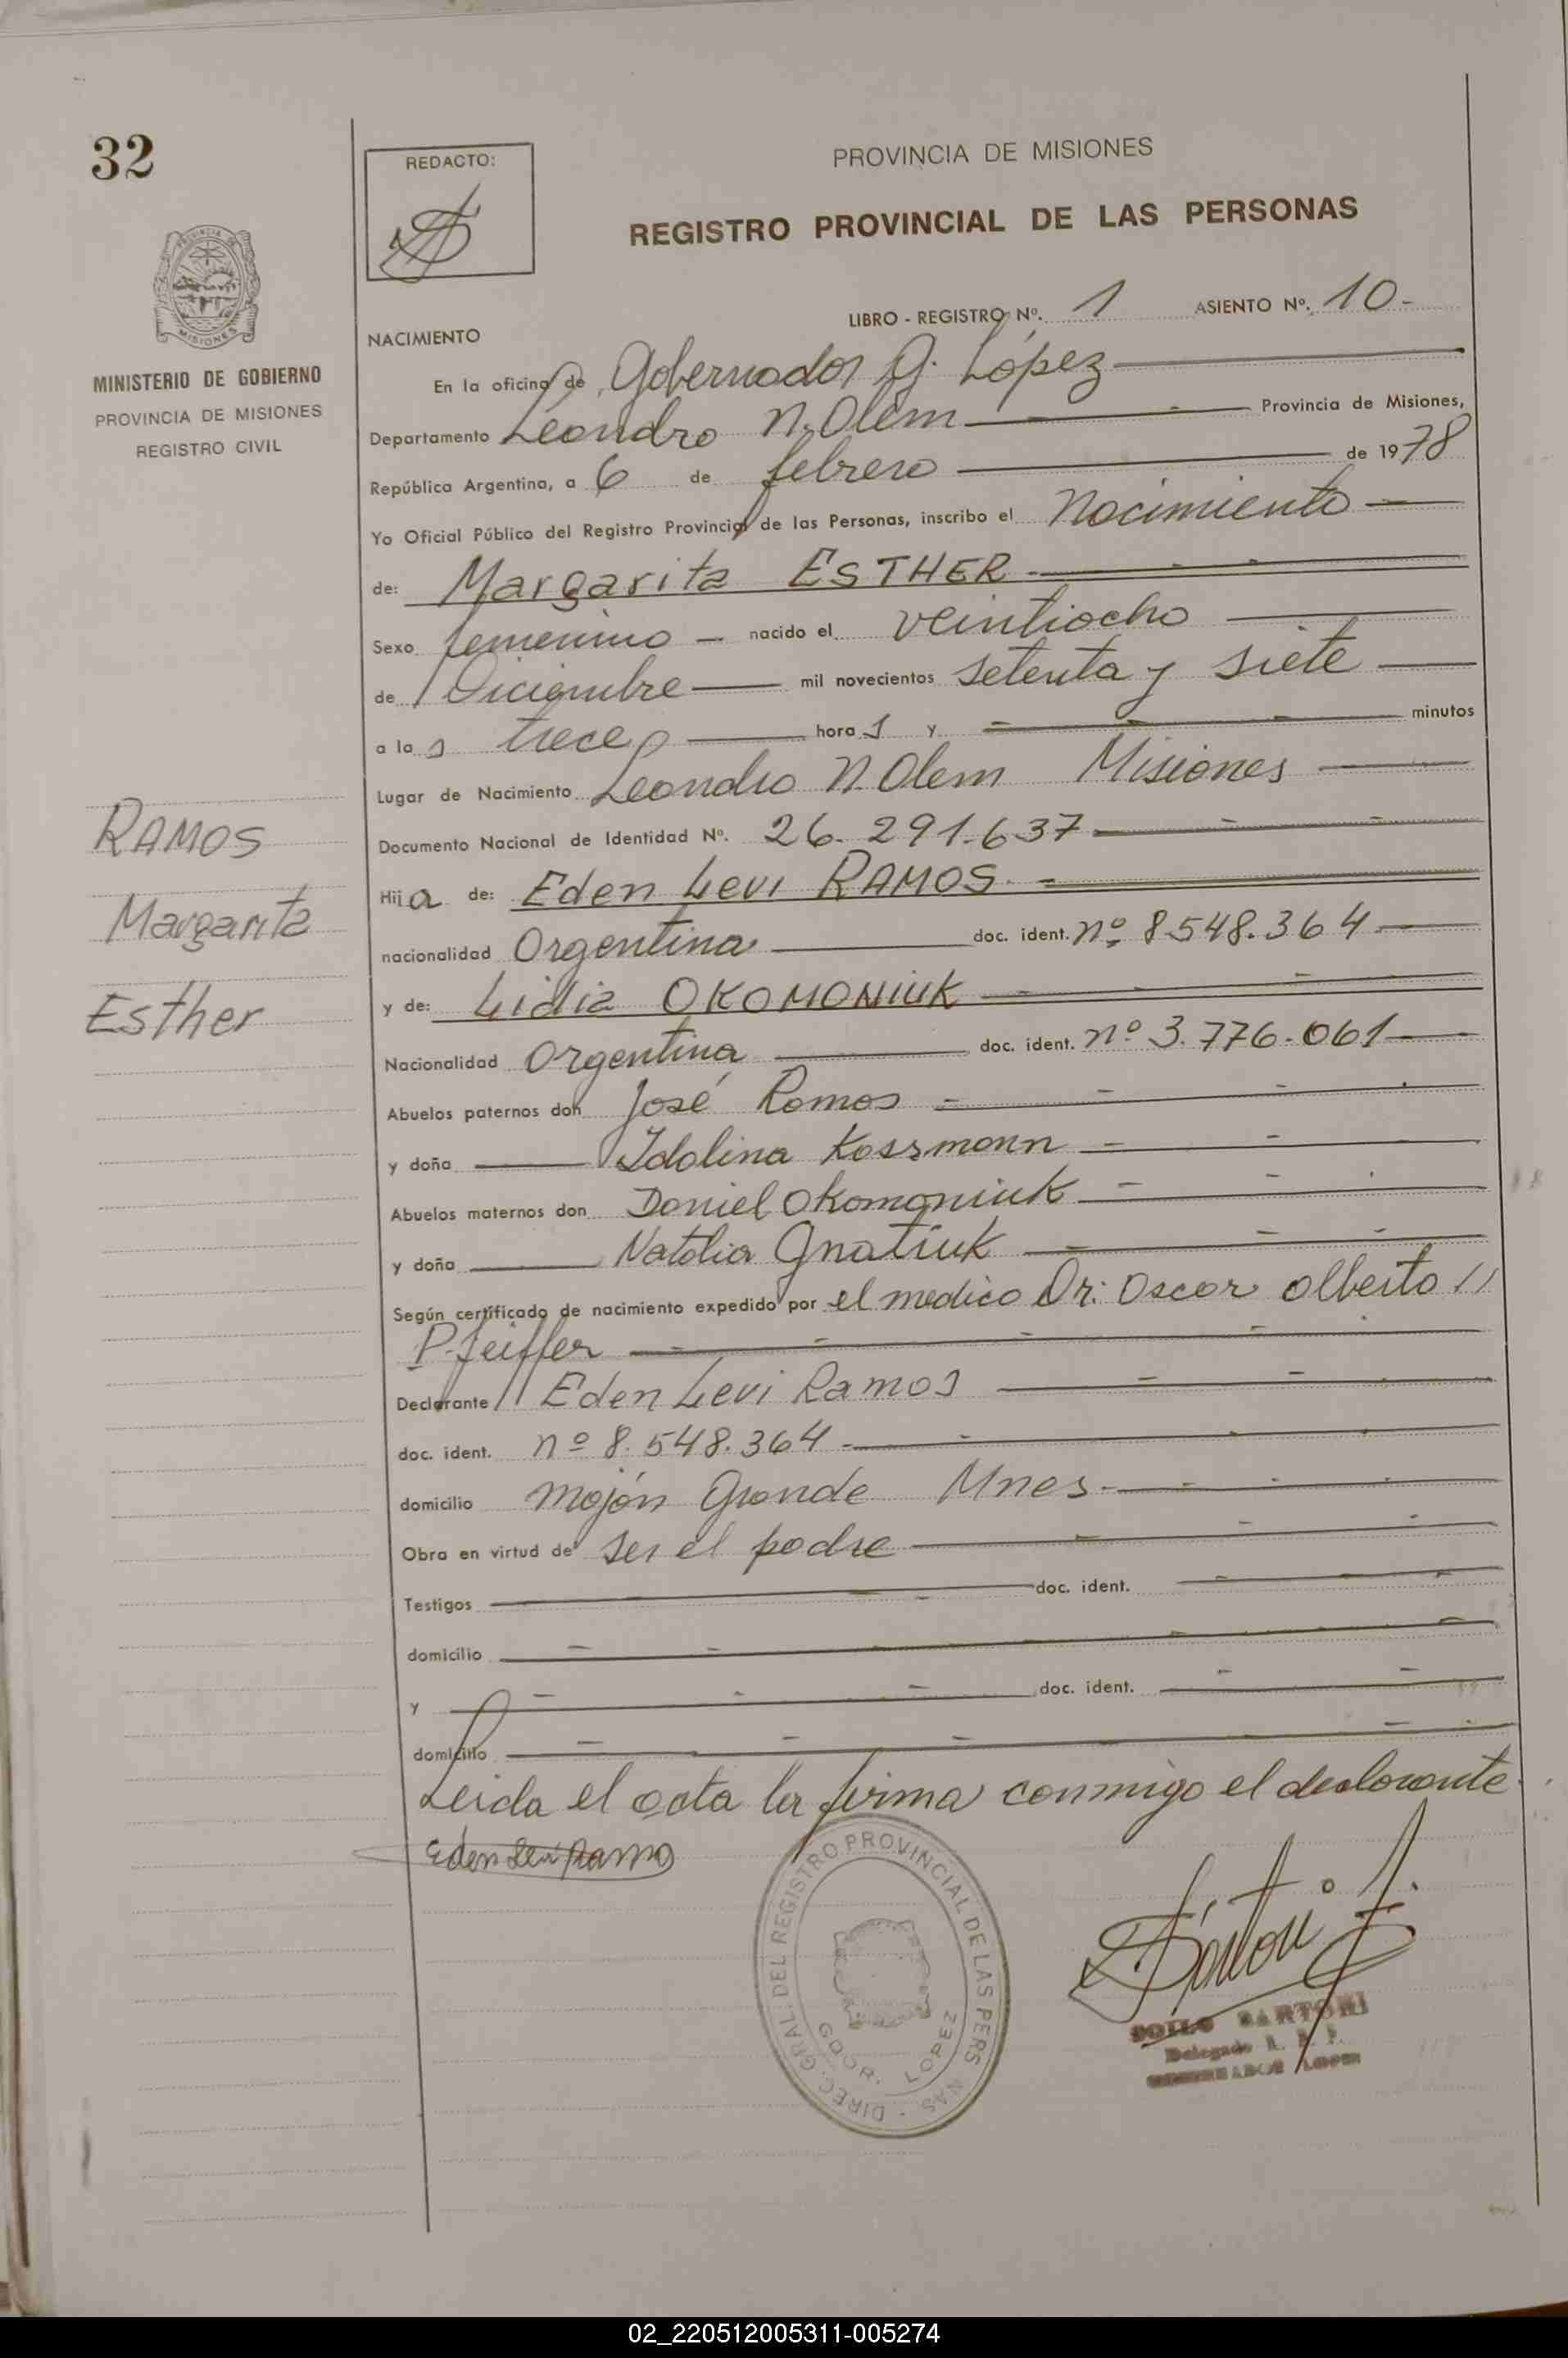 32
REDACTO:
PROVINCIA DE MISIONES
REGISTRO PROVINCIAL DE LAS PERSONAS
PROVINCIA DE
MISIONES
MINISTERIO DE GOBIERNO
PROVINCIA DE MISIONES
REGISTRO CIVIL
LIBRO - REGISTRO Nº. 1 ASIENTO Nº. 10-
NACIMIENTO
En la oficina de Gobernador G. López
Departamento Leandro N. Alem Provincia de Misiones,
República Argentina, a 6 de febrero de 1978
Yo Oficial Público del Registro Provincial de las Personas, inscribo el Nacimiento
de: Margarita ESTHER
Sexo femenino nacido el veintiocho
de Diciembre mil novecientos setenta y siete
a las trece horas y minutos
Lugar de Nacimiento Leandro N. Alem Misiones
Documento Nacional de Identidad Nº. 26.291.637
RAMOS
Margarita
Esther
Hija de: Eden Levi RAMOS
nacionalidad Argentina doc. ident. nº 8.548.364
y de: Lidia OKOMONIUK
Nacionalidad Argentina doc. ident. nº 3.776.061
Abuelos paternos don José Ramos
y doña Idalina Kossmann
Abuelos maternos don Daniel Okomoniuk
y doña Natalia Gnatiuk
Según certificado de nacimiento expedido por el medico Dr. Oscar Alberto //
Pfeiffer
Declarante // Eden Levi Ramos
doc. ident. nº 8.548.364
domicilio Mojón Grande Mnes.
Obra en virtud de ser el padre
Testigos doc. ident.
domicilio
y doc. ident.
domicilio
Leida el acta la firma conmigo el declarante.
Eden Levi Ramos
DIREC. GRAL. DEL REGISTRO PROVINCIAL DE LAS PERS NAS
GDOR. LOPEZ
Sartori
SOILO SARTORI
Delegado
GOBERNADOR LOPEZ
02_220512005311-005274